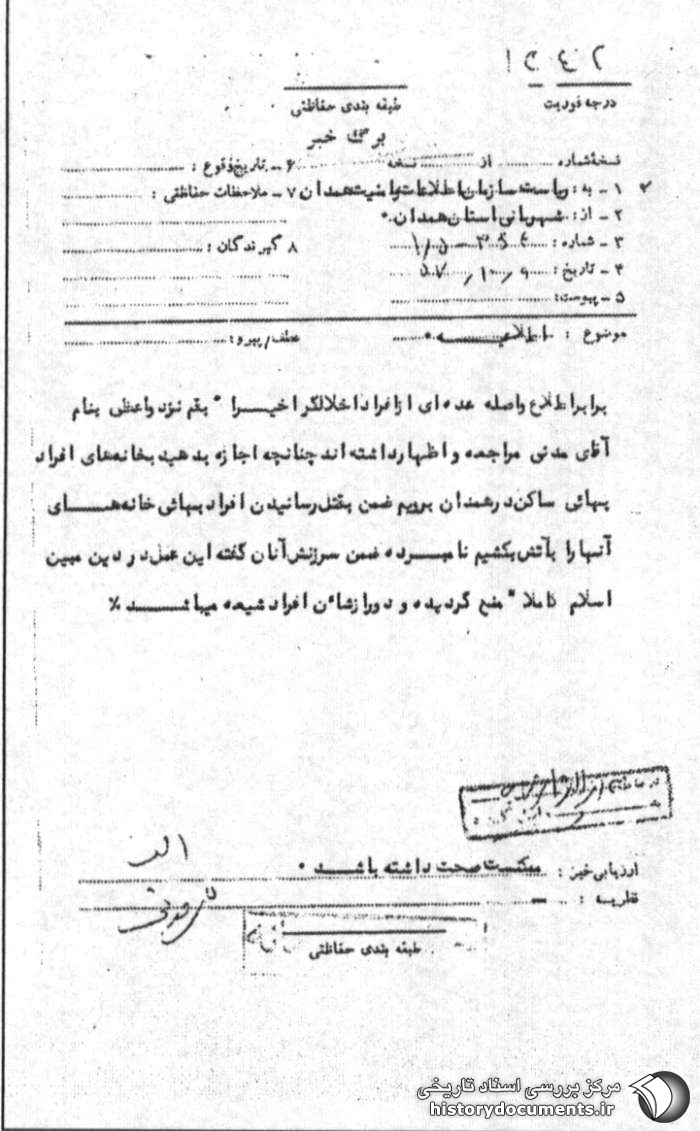 درجه فوریت
طبقه بندی حفاظتی
برگ خبر
نسخهٔ شماره از نسخه
۶ ـ تاریخ وقوع :
۱ ـ به : ریاست سازمان اطلاعات و امنیت همدان
۷ ـ ملاحظات حفاظتی :
۲ ـ از : شهربانی استان همدان .
۳ ـ شماره :
۸ گیرندگان :
۴ ـ تاریخ : ۵۷/۱۰/۹
۵ ـ پیوست :
موضوع : اطلاعیه .
عطف/پیرو :
برابر اطلاع واصله عده‌ای از افراد اخلالگر اخیرا" بقم نزد واعظی بنام
آقای مدنی مراجعه و اظهار داشته‌اند چنانچه اجازه بدهید بخانه‌های افراد
بهائی ساکن در همدان برویم ضمن بقتل رسانیدن افراد بهائی خانه‌های
آنها را بآتش بکشیم نامبرده ضمن سرزنش آنان گفته این عمل در دین مبین
اسلام کاملا" منع گردیده و دور از شان افراد شیعه میباشد ٪
ارزیابی خبر : ممکنست صحت داشته باشد .
نظریه : ـ
طبقه بندی حفاظتی
مرکز بررسی اسناد تاریخی
historydocuments.ir